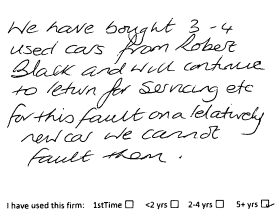 We have bought 3-4
used cars from Robert
Black and will continue
to return for servicing etc
for this fault on a relatively
new car we cannot
fault them.
I have used this firm: 1stTime ☐ <2 yrs ☐ 2-4 yrs ☐ 5+ yrs ☑